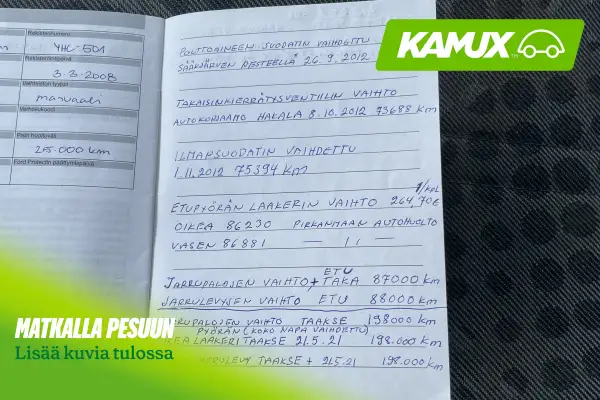 Rekisterinumero
YHC-501
Rekisteröintipäivä
3.3-2008
Vaihteiston tyyppi
manuaali
215.000 km
Ford Protectin päättymispäivä
POLTTOAINEEN SUODATIN VAIHDETTU
SÄÄKJÄRVEN NESTEELLÄ 26.9.2012
TAKAISINKIERRÄTYSVENTIILIN VAIHTO
AUTOKORJAAMO HAKALA 8.10.2012 73688 KM
ILMANSUODATIN VAIHDETTU
1.11.2012 75394 KM
1/KPL
ETUPYÖRÄN LAAKERIN VAIHTO 264,70€
OIKEA 86230 PIRKANMAAN AUTOHUOLTO
VASEN 86881 — 11 —
ETU
JARRUPALOJEN VAIHTO + TAKA 87000 KM
JARRULEVYJEN VAIHTO ETU 88000 KM
JARRUPALOJEN VAIHTO TAAKSE 198000 KM
PYÖRÄN (KOKO NAPA VAIHDETTU)
LAAKERI TAAKSE 21.5.21 198.000 KM
TAAKSE + 21.5.21 198.000 KM
KAMUX
MATKALLA PESUUN
Lisää kuvia tulossa